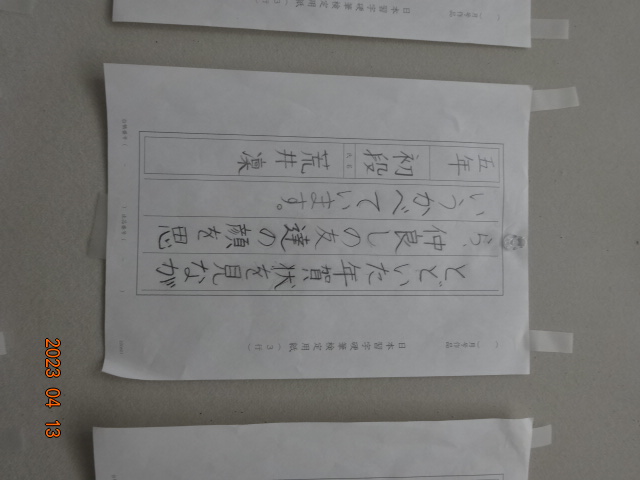 日本習字硬筆検定用紙(3行)
二月号作品
とどいた年賀状を見なが
ら、仲良しの友達の顔を思
いうかべています。
五年
初段
氏名
荒井凜
2023 04 13